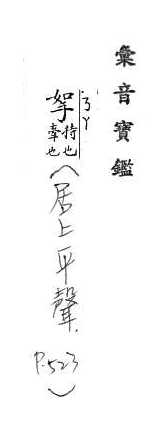 彙音寶鑑
ㄋㄚ
挐
持也
牽也
(居上平聲. P.523)